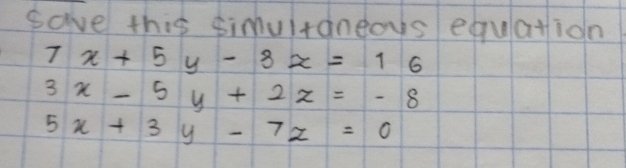 solve this simultaneous equation
7x + 5y - 3z = 16
3x - 5y + 2z = -8
5x + 3y - 7z = 0